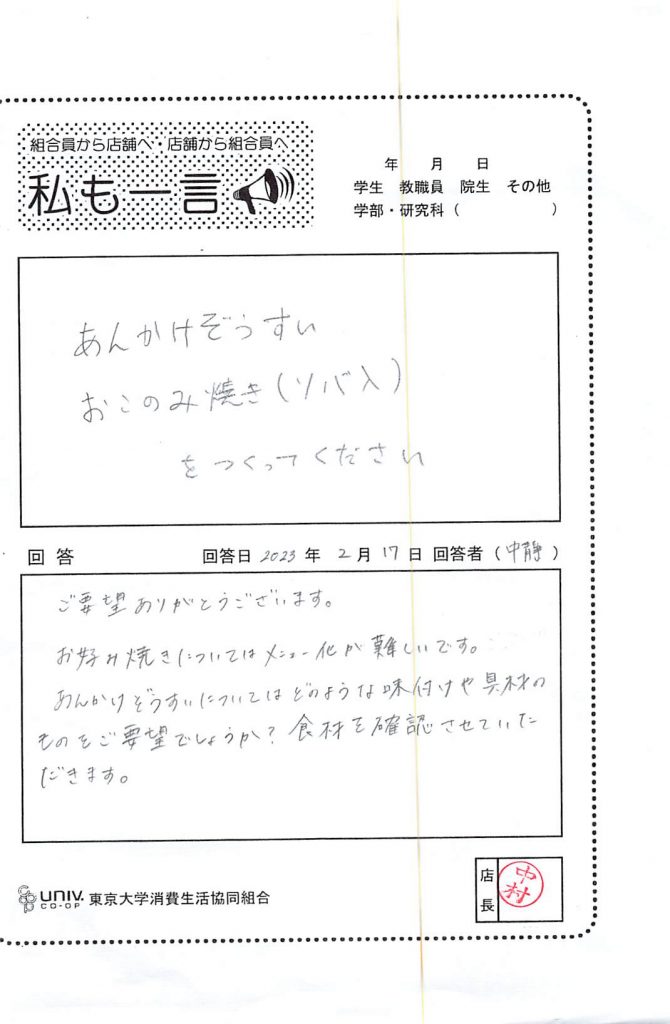 組合員から店舗へ・店舗から組合員へ
私も一言
年 月 日
学生 教職員 院生 その他
学部・研究科( )
あんかけぞうすい
おこのみ焼き(ソバ入)
をつくってください
回答 回答日 2023 年 2 月 17 日 回答者(中静)
ご要望ありがとうございます。
お好み焼きについてはメニュー化が難しいです。
あんかけぞうすいについてはどのような味付けや具材の
ものをご要望でしょうか?食材を確認させていた
だきます。
UNIV. CO-OP 東京大学消費生活協同組合
店長 中村